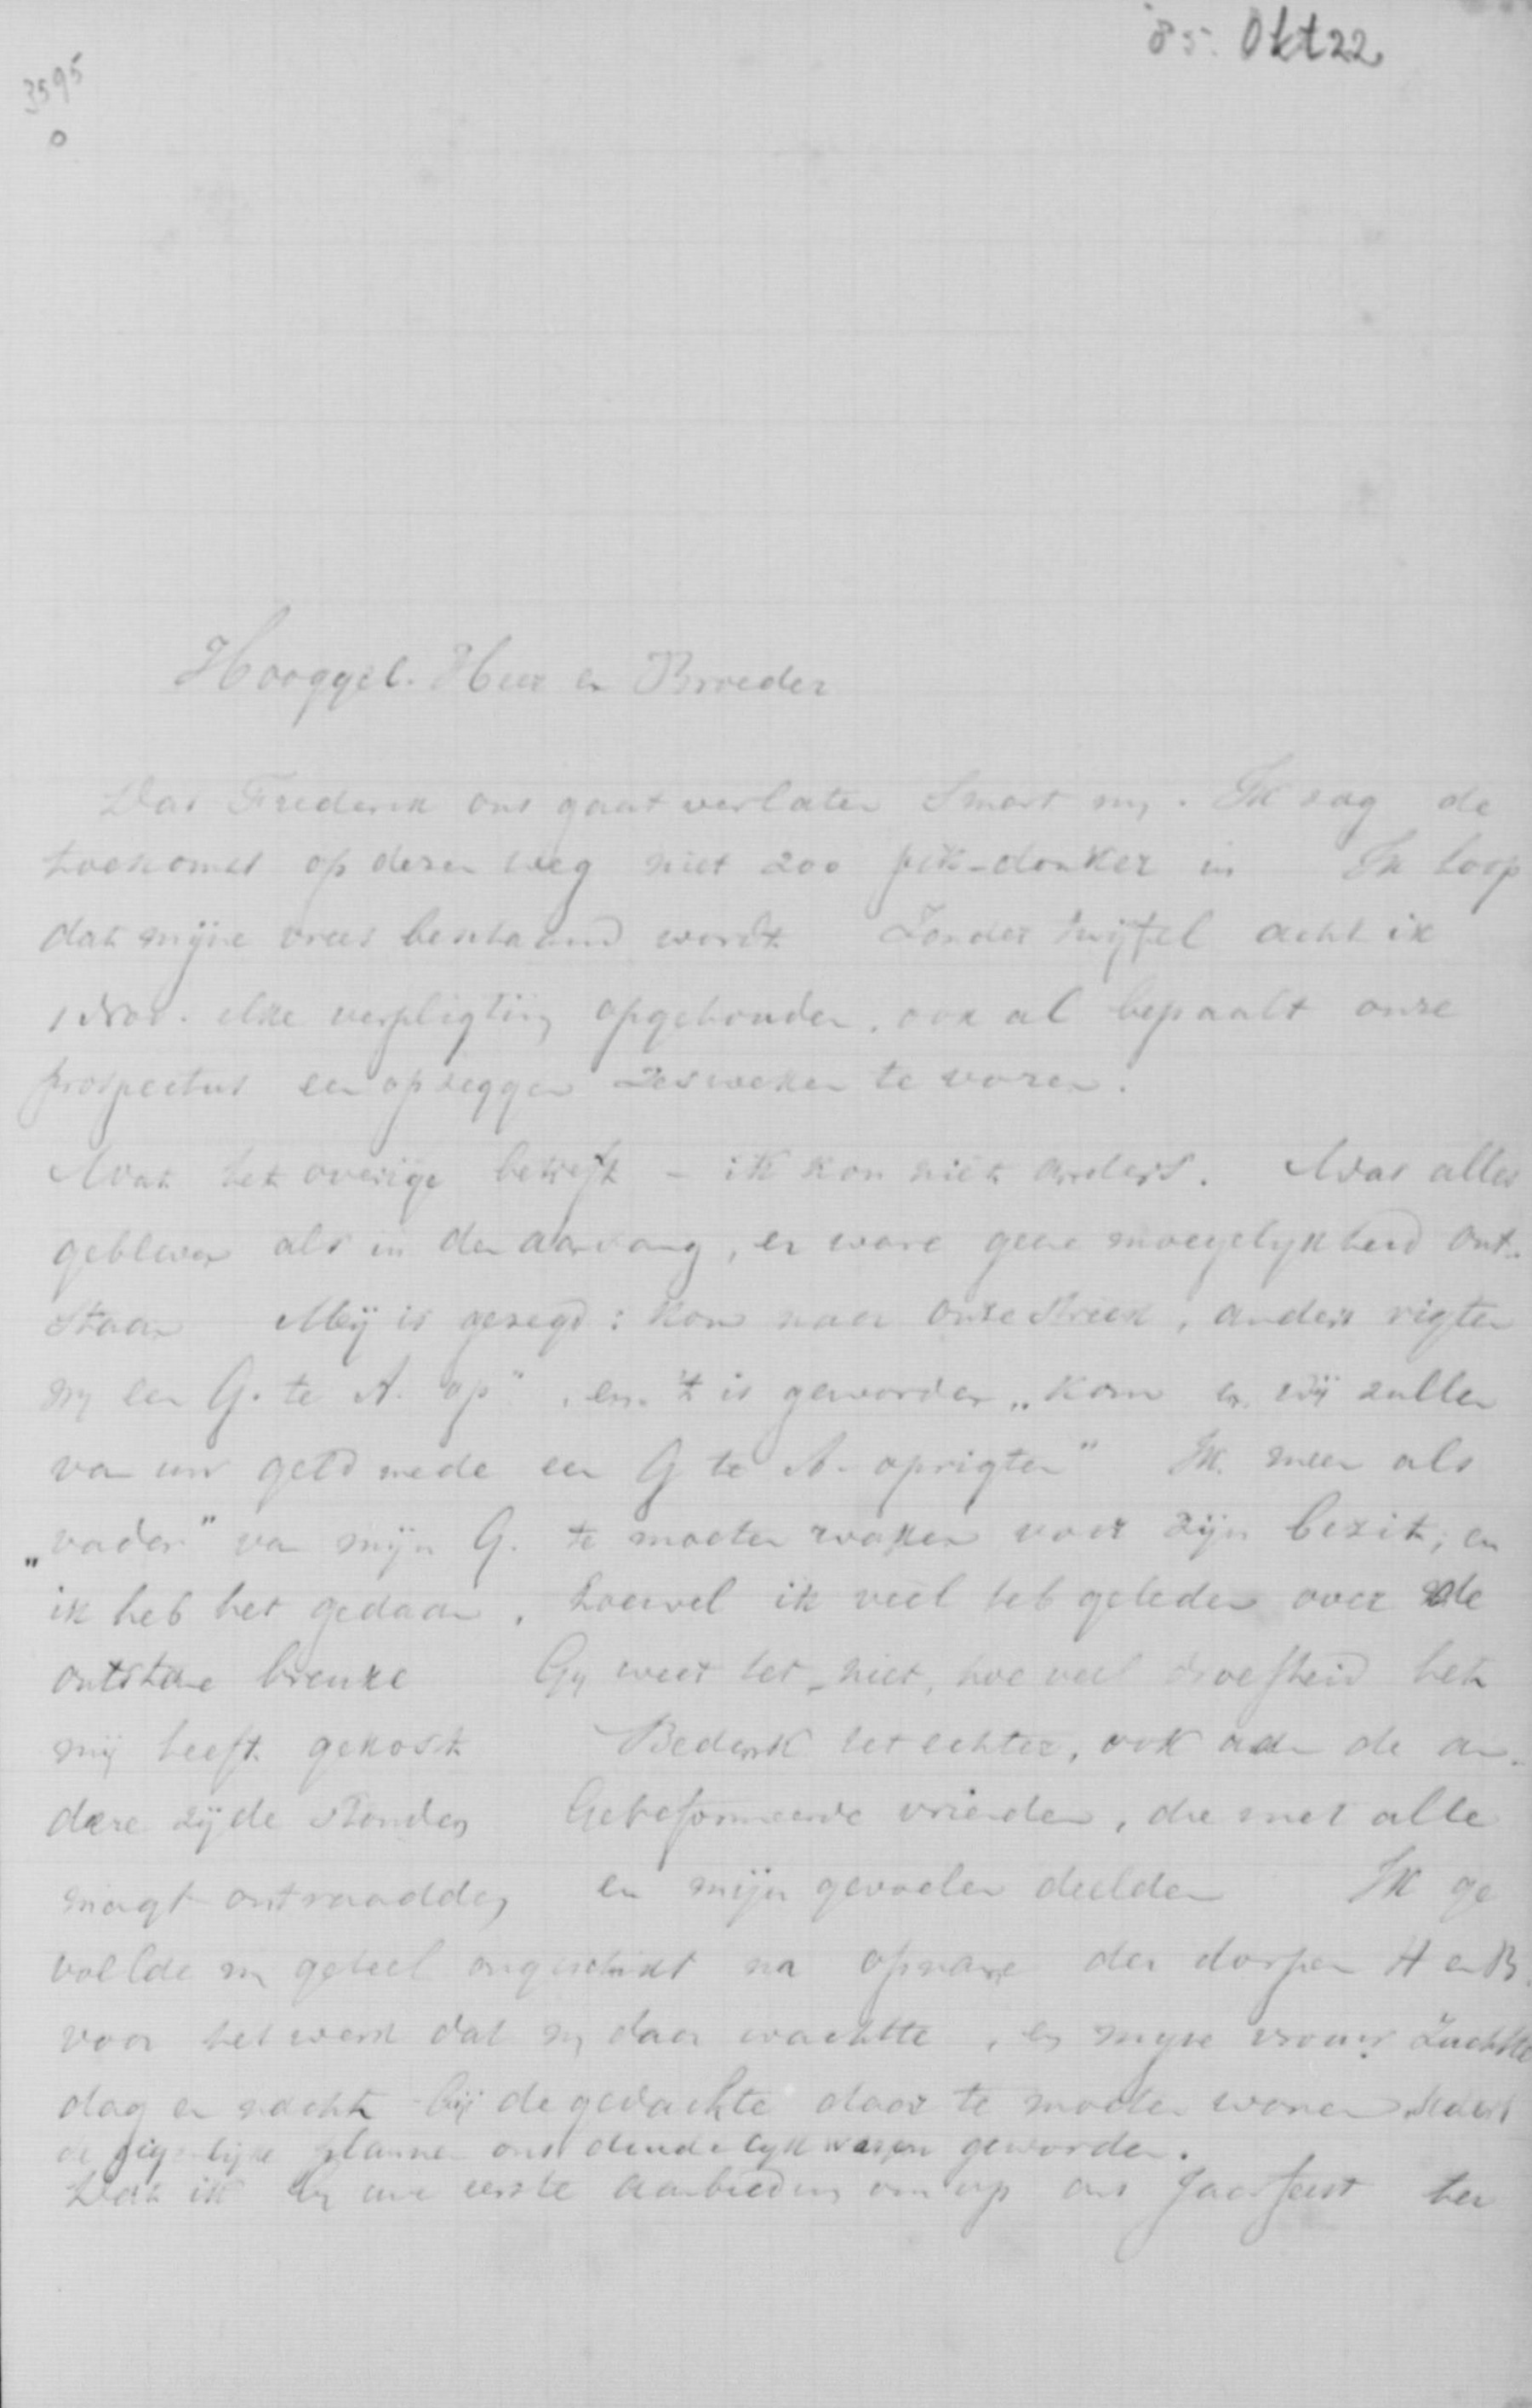 '85. Okt 22
3595
0
Hooggel. Heer en Broeder
Dat Frederik ons gaat verlaten smart mij. Ik zag de
toekomst op dezen weg niet zoo pik-donker in Ik hoop
dat mijne vrees beschaamd wordt Zonder twijfel acht ik
1 Nov. elke verpligting opgehouden, ook al bepaalt onze
prospectus een opzeggen zes weken te voren.
Wat het overige betreft - ik kon niet anders. Was alles
gebleven als in den aanvang, er ware geene moeyelykheid ont-
staan Mij is gezegd: kom naar onze streek, anders rigten
wy een G. te A. op", en 't is geworden „kom en wij zullen
van uw geld mede een G te A. oprigten" Ik meen als
„vader" van mijn G. te moeten waken voor zijn bezit; en
ik heb het gedaan, hoewel ik veel heb geleden over de
ontstane breuke Gy weet het niet, hoe veel droefheid het
mij heeft gekost Bedenk het echter, ook aan de an-
dere zijde stonden Gereformeerde vrienden, die met alle
magt ontraadden en mijn gevoelen deelden Ik ge
voelde my geheel ongeschikt na opname der dorpen H en B.
voor het werk dat my daar wachtte, en myne vrouw zuchtte
dag en nacht bij de gedachte daar te moeten wonen sedert
de eigenlijke plannen ons duidelyk waren geworden.
Dat ik by uw eerste aanbieding om op ons Jaarfeest ter